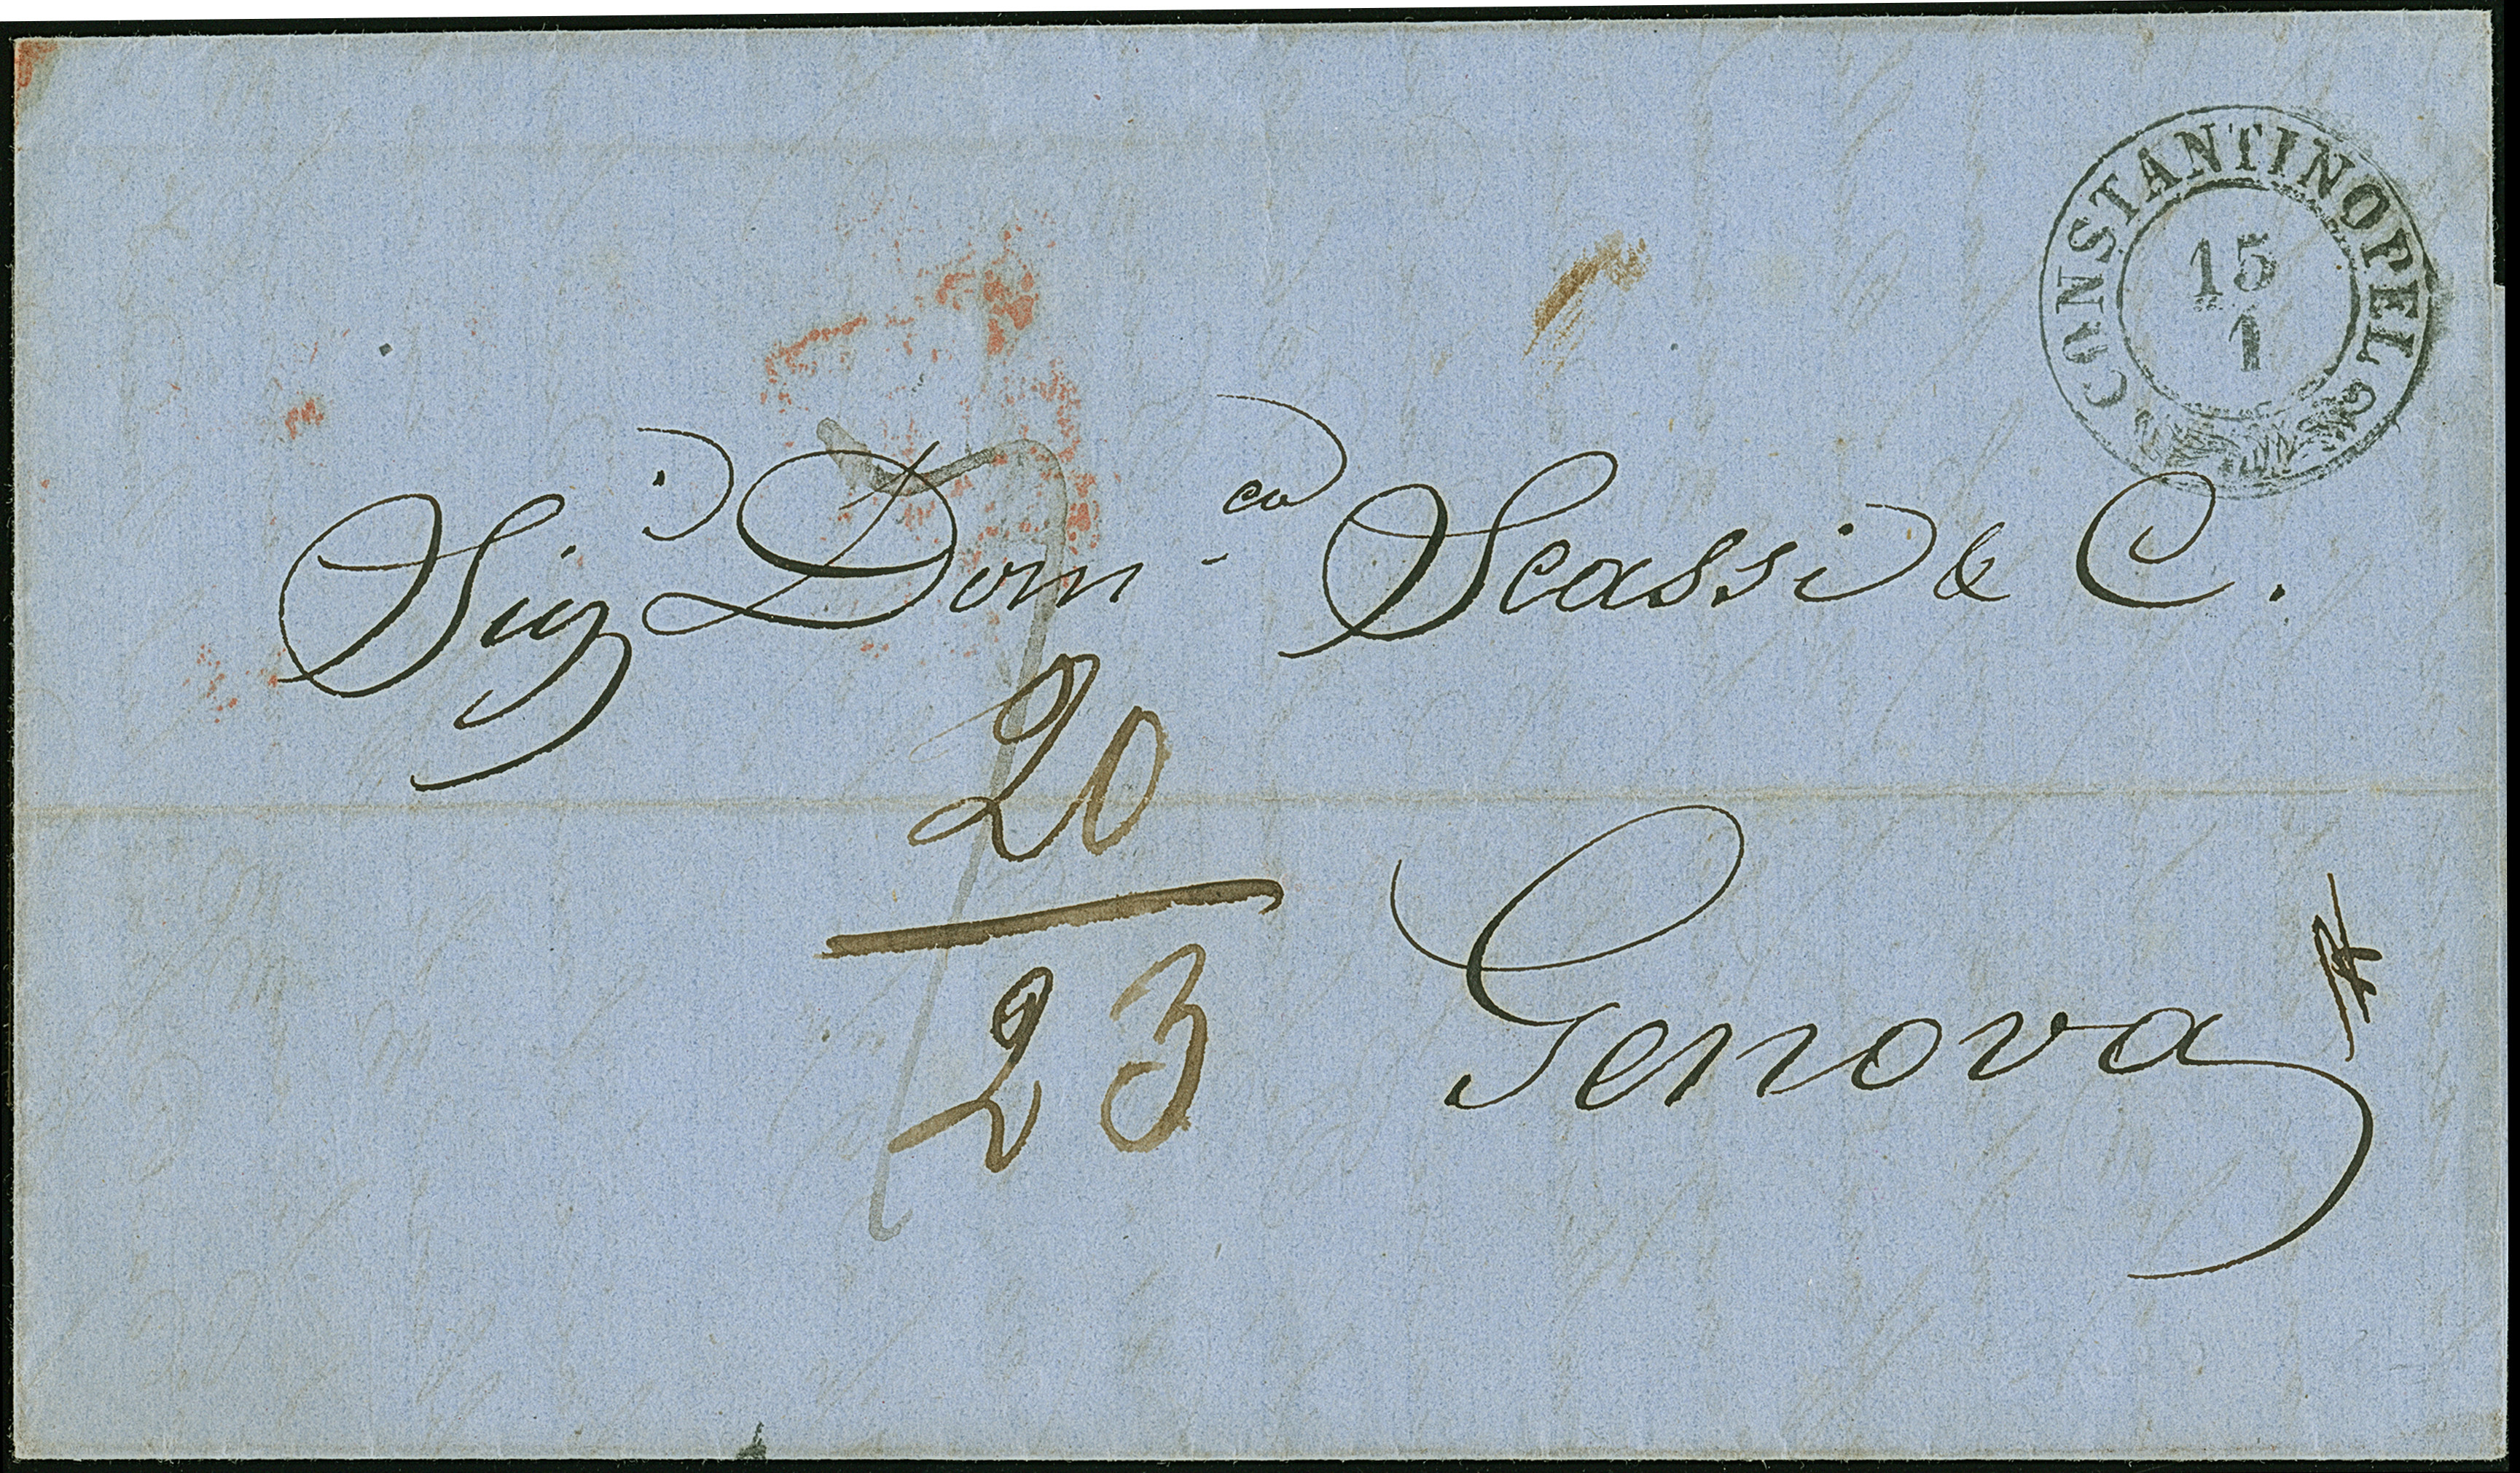 CONSTANTINOPEL
15
1
Sig.i Dom.co Scassi & C.
20
23
Genova